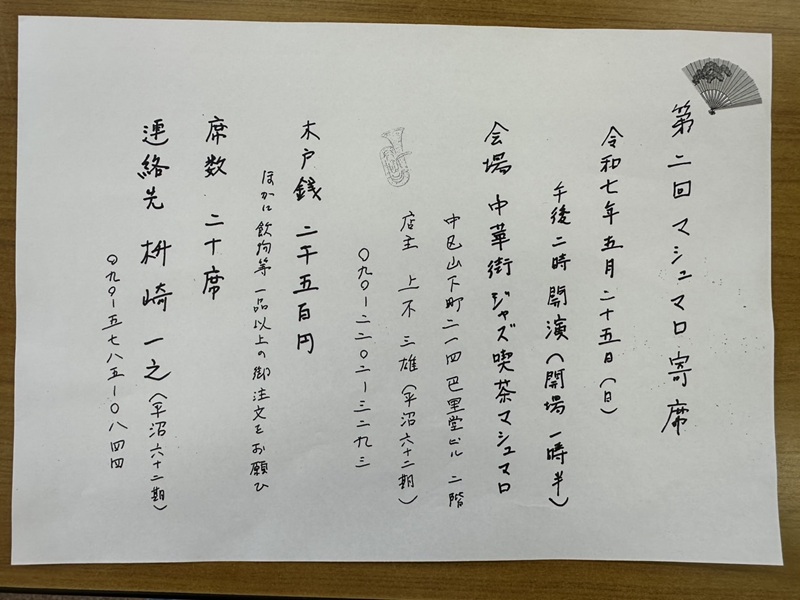 第二回 マシュマロ寄席
令和七年五月二十五日(日)
午後二時開演(開場一時半)
会場 中華街ジャズ喫茶マシュマロ
中区山下町二一四 巴里堂ビル 二階
店主 上不 三雄(平沼六十二期)
〇九〇ー二二〇二ー三二九三
木戸銭 二千五百円
ほかに飲物等一品以上の御注文をお願ひ
席数 二十席
連絡先 枡崎 一之(平沼六十二期)
〇九〇ー五七八五ー〇八四四